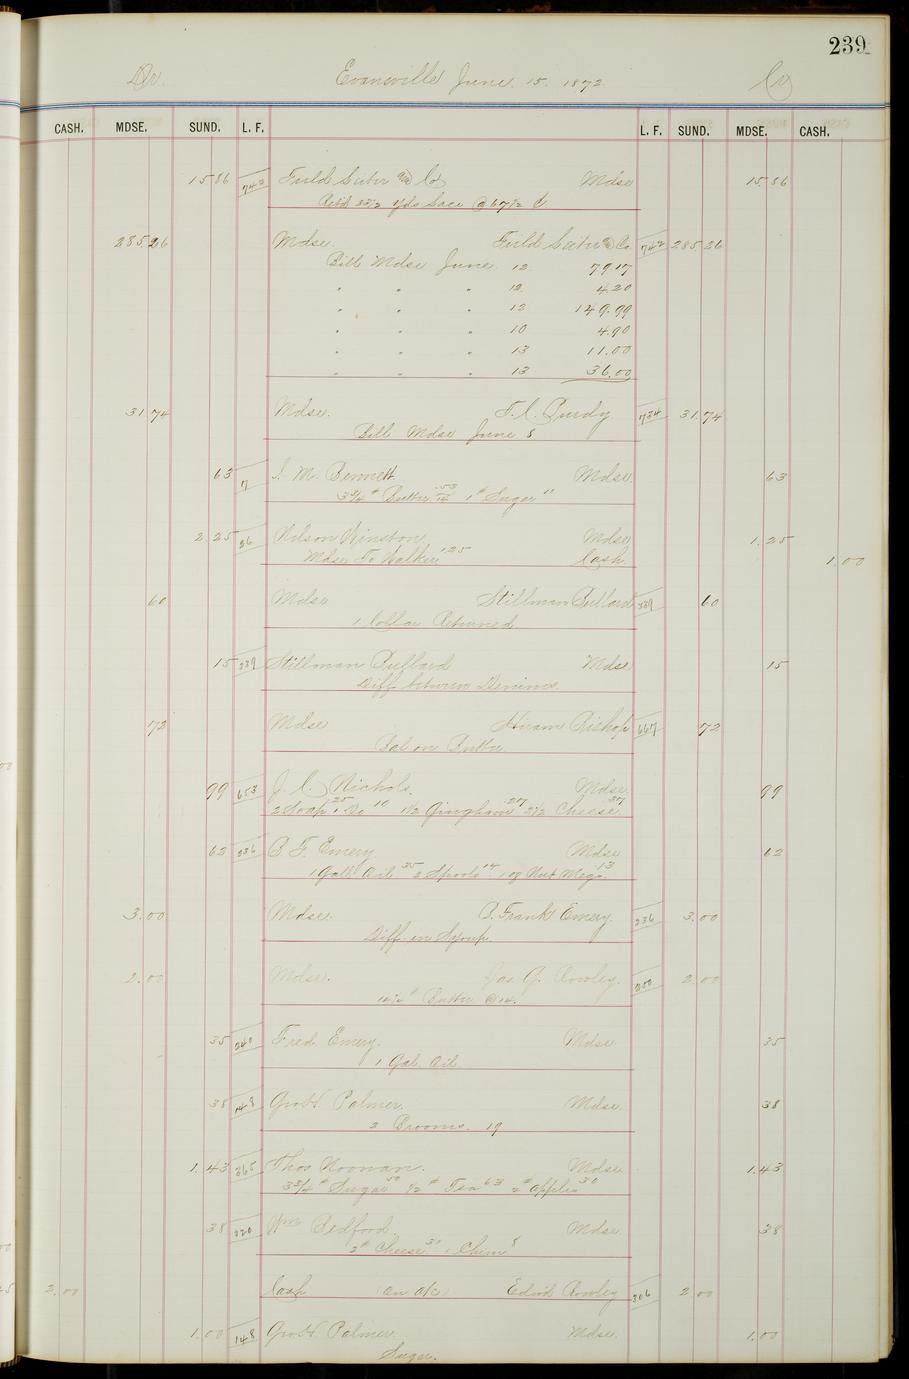 239
Dr. Evansville June. 15. 1872. Cr
CASH. MDSE. SUND. L. F. L. F. SUND. MDSE. CASH.
15 86 742 Field Leiter & Co Mdse 15.86
23 1/2 yds Lace @ 67 1/2 ¢
285.26 Mdse. Field Leiter & Co 742 285 26
Bill Mdse June 12 79.17
" " " 12 4.20
" " " 12 149.99
" " " 10 4.90
" " " 13 11.00
" " " 13 36.00
31.74 Mdse. F. C. Purdy 734 31.74
Bill Mdse June 8
63 7 M. Bennett Mdse. 63
3 3/4 # Butter 1 # Sugar 11
2.25 26 Nelson Winston Mdse 1.25
Mdse To Walker 1.25 Cash. 1.00
60 Mdse Stillman Bullard 339 60
1 Collar Returned
15 339 Stillman Bullard Mdse 15
Diff between Denims.
72 Mdse Hiram Bishop 667 72
Bal on Butter.
99 653 J. C. Nichols. Mdse. 99
2 Soap 25 1 Do 10 1 1/2 Gingham 27 2 1/2 Cheese 37
62 236 B. F. Emery Mdse 62
1 Gall Oil 35 2 Spools 14 1 oz Nut Megs. 13
3.00 Mdse. B. Frank Emery. 236 3.00
Diff in Syrup.
2.00 Mdse. Jas. G. Rowley. 200 2 00
14 1/2 # Butter @ 14.
35 240 Fred Emery. Mdse 35
1 Gal. Oil
38 148 Geo H. Palmer. Mdse. 38
2 Brooms. 19
1.43 365 Thos Noonan. Mdse 1.43
3 3/4 # Sugar 50 1/2 # Tea 63 2 # Apples 30
38 220 Wm Bedford. Mdse. 38
2 # Cheese 30 1 Chim 8
2.00 Cash (on a/c) Edwd Rowley 306 2 00
1.00 148 Geo H. Palmer. Mdse. 1.00
Sugar.